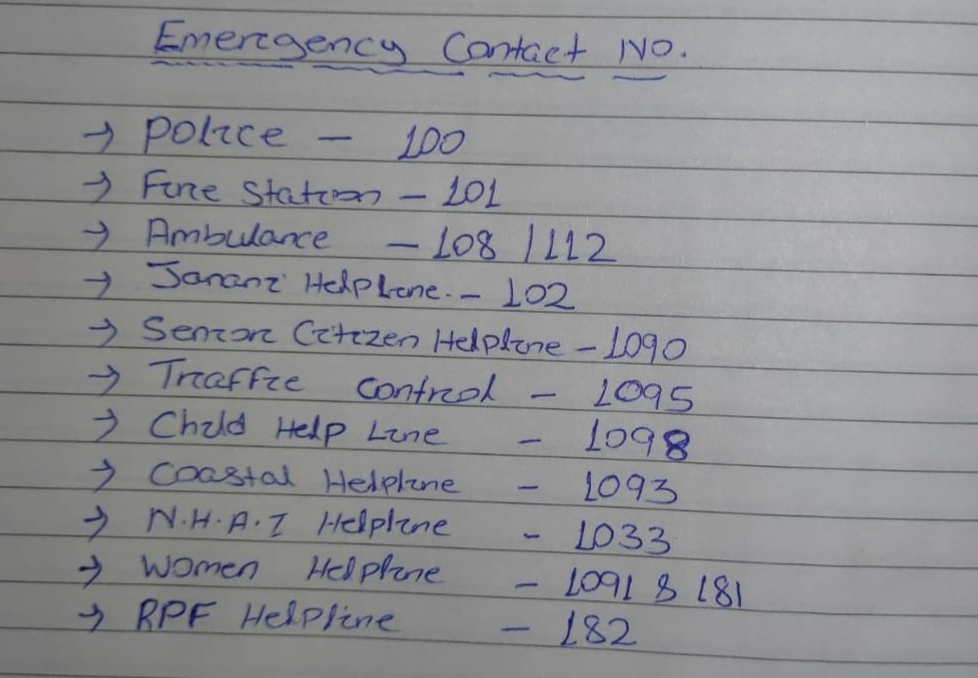 Emergency Contact NO.
→ Police - 100
→ Fire Station - 101
→ Ambulance - 108 / 112
→ Janani Helpline. - 102
→ Senior Citizen Helpline - 1090
→ Traffic control - 1095
→ Child Help Line - 1098
→ Coastal Helpline - 1093
→ N.H.A.I Helpline - 1033
→ Women Helpline - 1091 & 181
→ RPF Helpline - 182